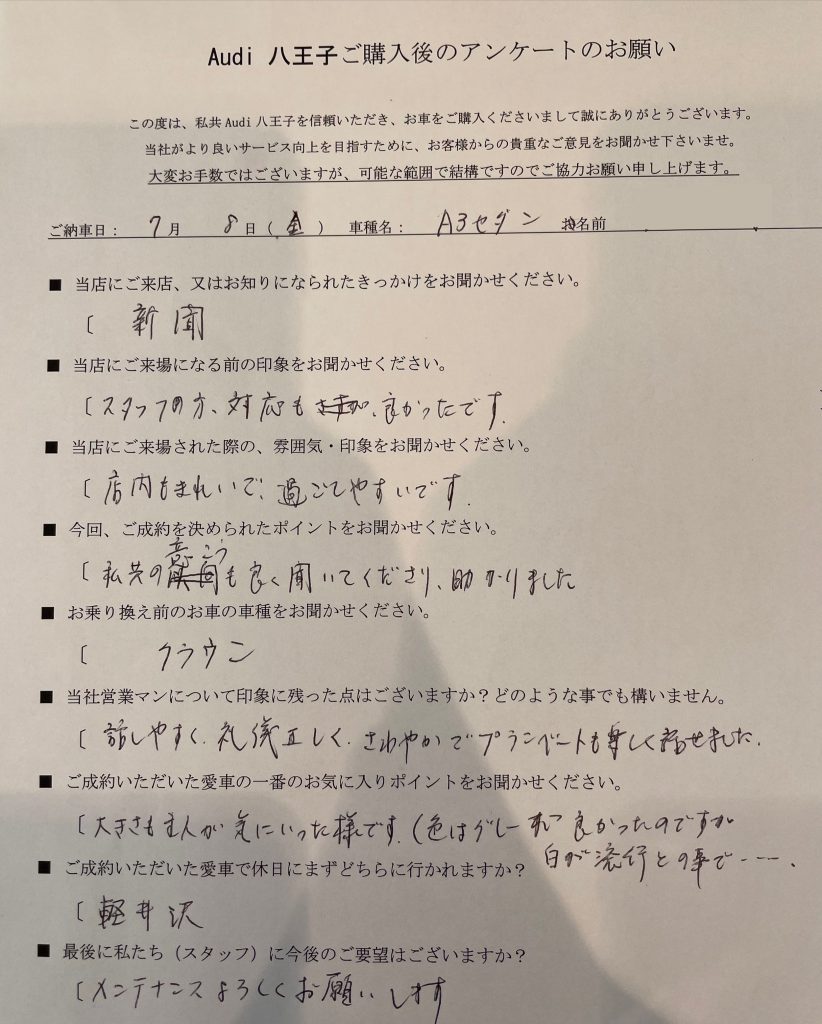 Audi 八王子ご購入後のアンケートのお願い
この度は、私共Audi八王子を信頼いただき、お車をご購入くださいまして誠にありがとうございます。
当社がより良いサービス向上を目指すために、お客様からの貴重なご意見をお聞かせ下さいませ。
大変お手数ではございますが、可能な範囲で結構ですのでご協力お願い申し上げます。
ご納車日： 7月 8日（金） 車種名： A3セダン お名前
■ 当店にご来店、又はお知りになられたきっかけをお聞かせください。
[ 新聞
■ 当店にご来場になる前の印象をお聞かせください。
[スタッフの方、対応も 良かったです.
■ 当店にご来場された際の、雰囲気・印象をお聞かせください。
[ 店内もきれいで、過ごしやすいです.
■ 今回、ご成約を決められたポイントをお聞かせください。
[ 私共の意こうも良く聞いてくださり、助かりました
■ お乗り換え前のお車の車種をお聞かせください。
[ クラウン
■ 当社営業マンについて印象に残った点はございますか？どのような事でも構いません。
[ 話しやすく、礼儀正しく、さわやかでプライベートも楽しく話せました.
■ ご成約いただいた愛車の一番のお気に入りポイントをお聞かせください。
[大きさも主人が気にいった様です.(色はグレーが良かったのですが
白が流行との事で‐‐‐‐.
■ ご成約いただいた愛車で休日にまずどちらに行かれますか？
[ 軽井沢
■ 最後に私たち（スタッフ）に今後のご要望はございますか？
[メンテナンスよろしくお願いします